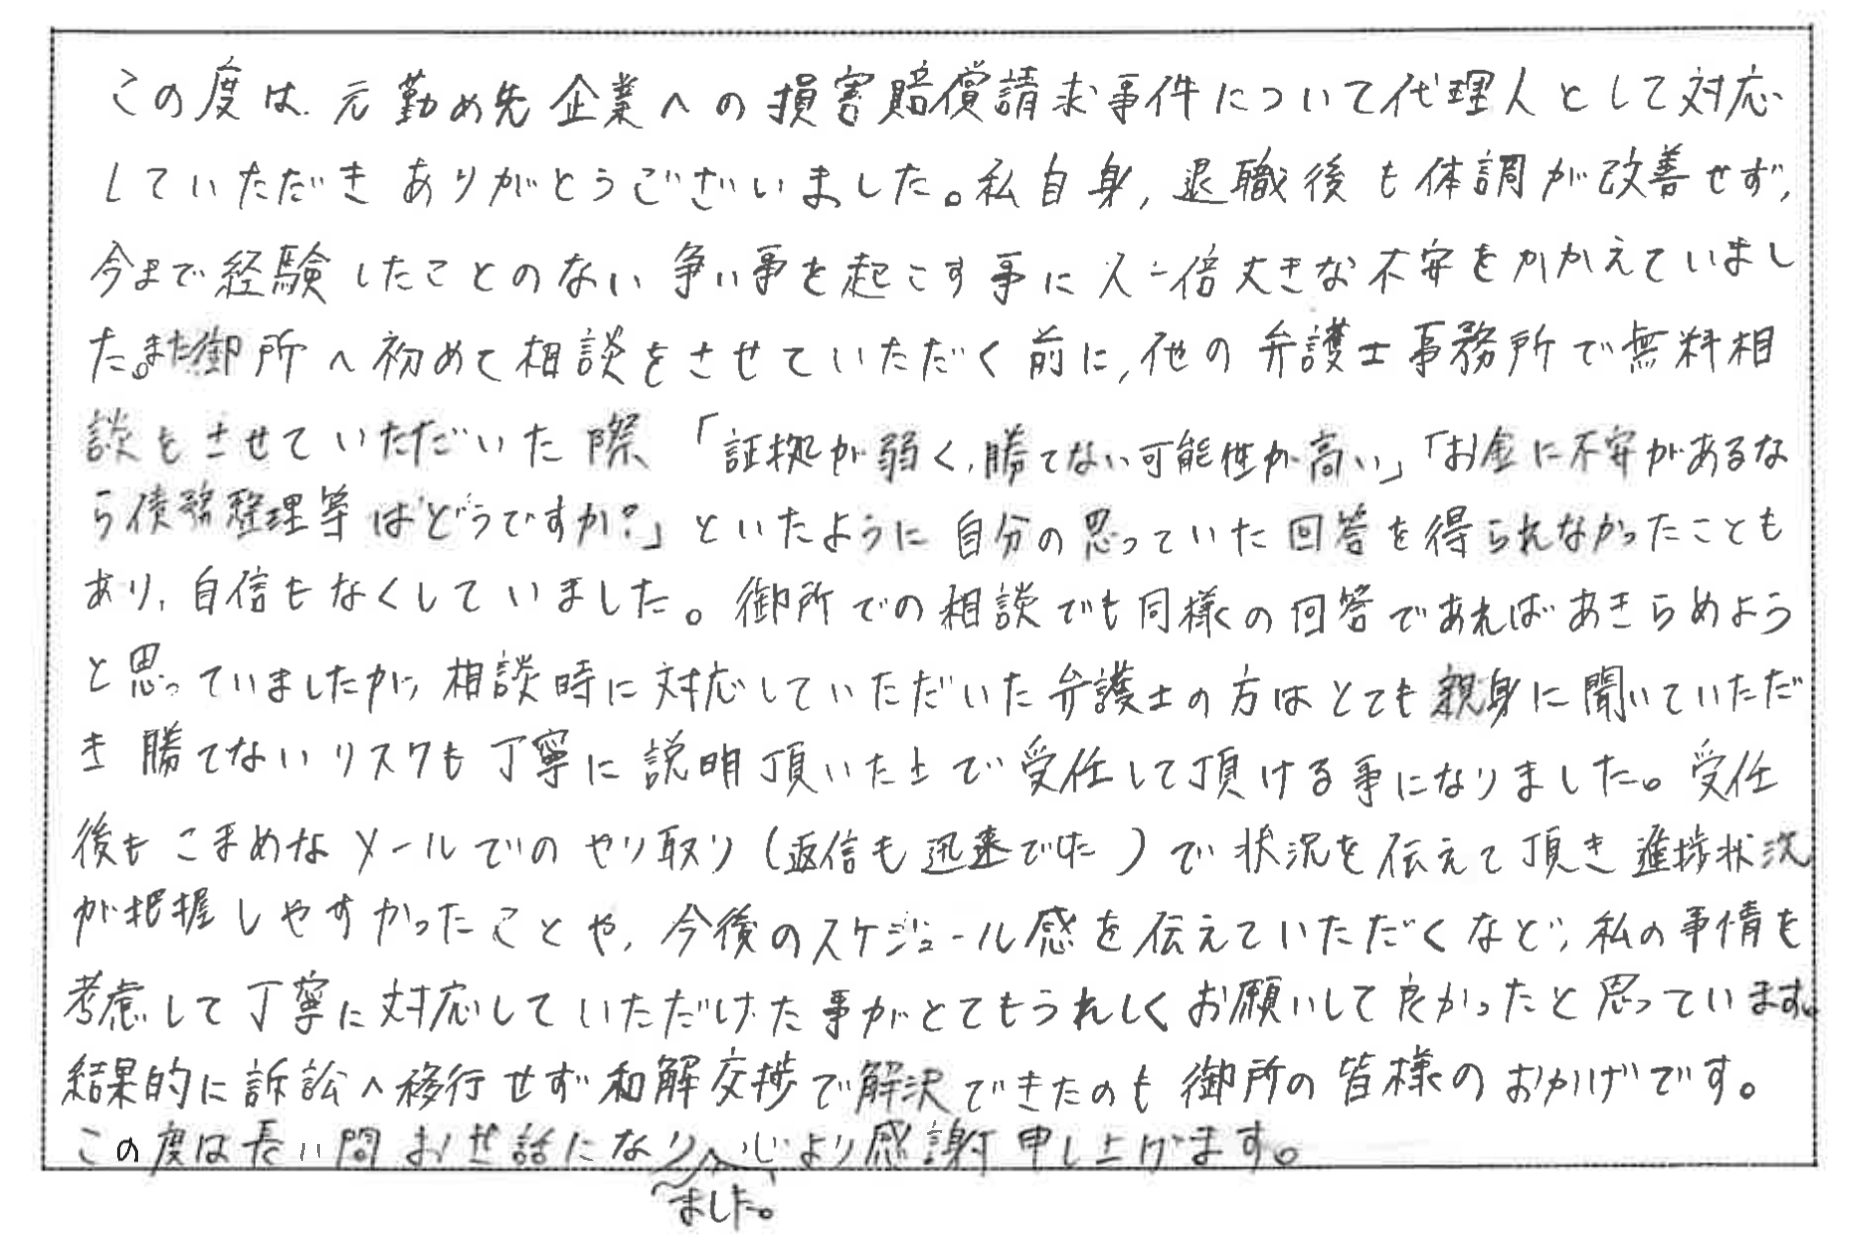 この度は、元勤め先企業への損害賠償請求事件について代理人として対応
していただきありがとうございました。私自身,退職後も体調が改善せず,
今まで経験したことのない争い事を起こす事に人一倍大きな不安をかかえていまし
た。また御所へ初めて相談をさせていただく前に,他の弁護士事務所で無料相
談をさせていただいた際「証拠が弱く,勝てない可能性が高い」「お金に不安があるな
ら債務整理等はどうですか?」といたように自分の思っていた回答を得られなかったことも
あり,自信もなくしていました。御所での相談でも同様の回答であればあきらめよう
と思っていましたが,相談時に対応していただいた弁護士の方はとても親身に聞いていただ
き勝てないリスクも丁寧に説明頂いた上で受任して頂ける事になりました。受任
後もこまめなメールでのやり取り(返信も迅速でした)で状況を伝えて頂き進捗状況
が把握しやすかったことや,今後のスケジュール感を伝えていただくなど,私の事情を
考慮して丁寧に対応していただけた事がとてもうれしくお願いして良かったと思っています。
結果的に訴訟へ移行せず和解交渉で解決できたのも御所の皆様のおかげです。
この度は長い間お世話になり心より感謝申し上げます。
ました。